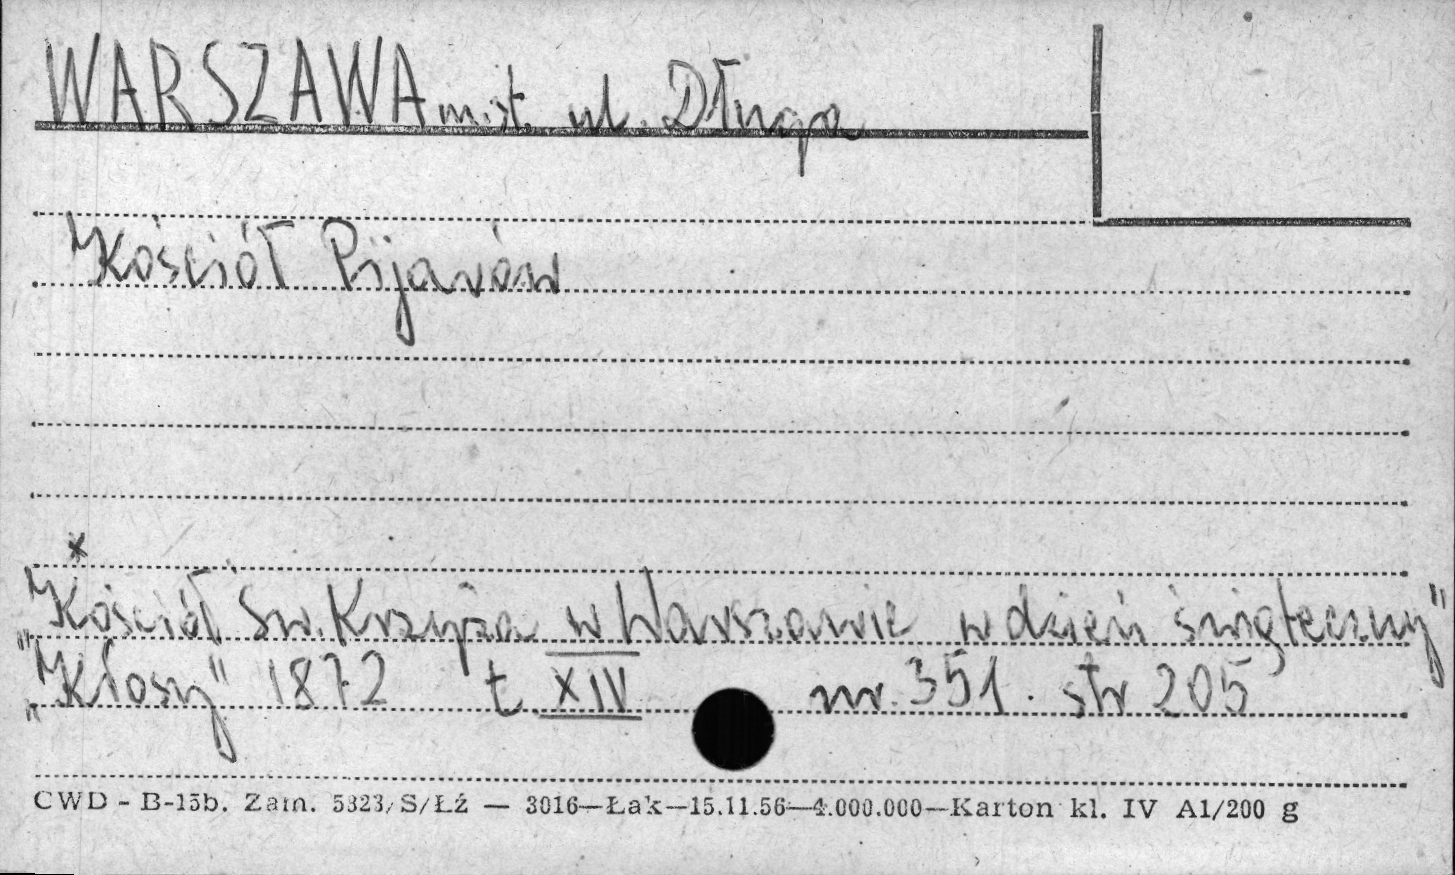 WARSZAWA m.st. ul. Długa
Kościół Pijarów
x
"Kościół Św. Krzyża w Warszawie w dzień świąteczny"
"Kłosy" 1872 t. XIV nr. 351. str 205
CWD - B-15b. Zam. 5323/S/Łż — 3016—Łak—15.11.56—4.000.000—Karton kl. IV A1/200 g